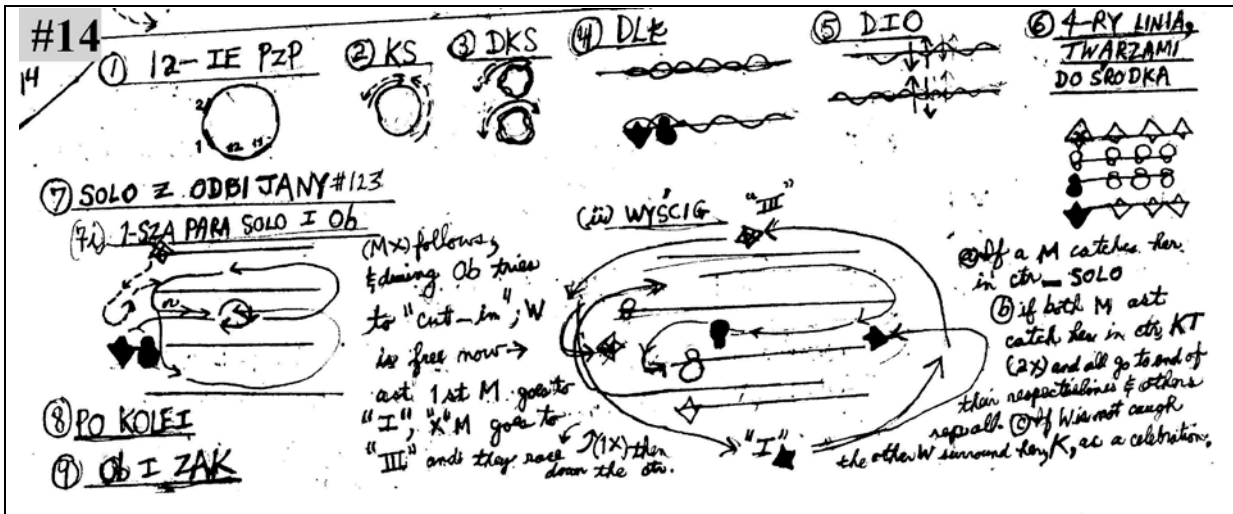 #14
14
① 12-IE PZP
② KS
③ DKS
④ DLK
⑤ DIO
⑥ 4-RY LINIA,
TWARZAMI
DO ŚRODKA
2
1 12 11
⑦ SOLO Z ODBIJANY #123
(7i) 1-SZA PARA SOLO I Ob
(MX) follows,
& during Ob tries
to "cut-in", W
is free now →
ast 1st M goes to
"I", "X" M goes to
"III" and they race (1X) then
down the ctr.
(ii) WYŚCIG "III"
"I"
ⓐ If a M catches her
in ctr — SOLO
ⓑ if both M ast
catch her in ctr, KT
(2X) and all go to end of
their respectlines & others
rep all. ⓒ If W is not caugh
the other W surround her, K, as a celebration.
⑧ PO KOLEI
⑨ Ob I ZAK